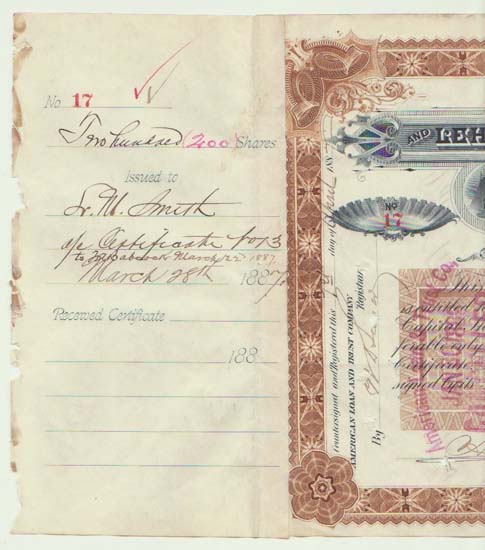 No 17
Two hundred (200) Shares
Issued to
Smith
a/c Certificate No 13
to Babcock March 22 1887.
March 28th 1887
Received Certificate
188
AND LEH
No
17
day of 188
Countersigned and Registered this
AMERICAN LOAN AND TRUST COMPANY
Registrar,
By
This
is entitled
Capital
ferable only
Certificate
signed by its